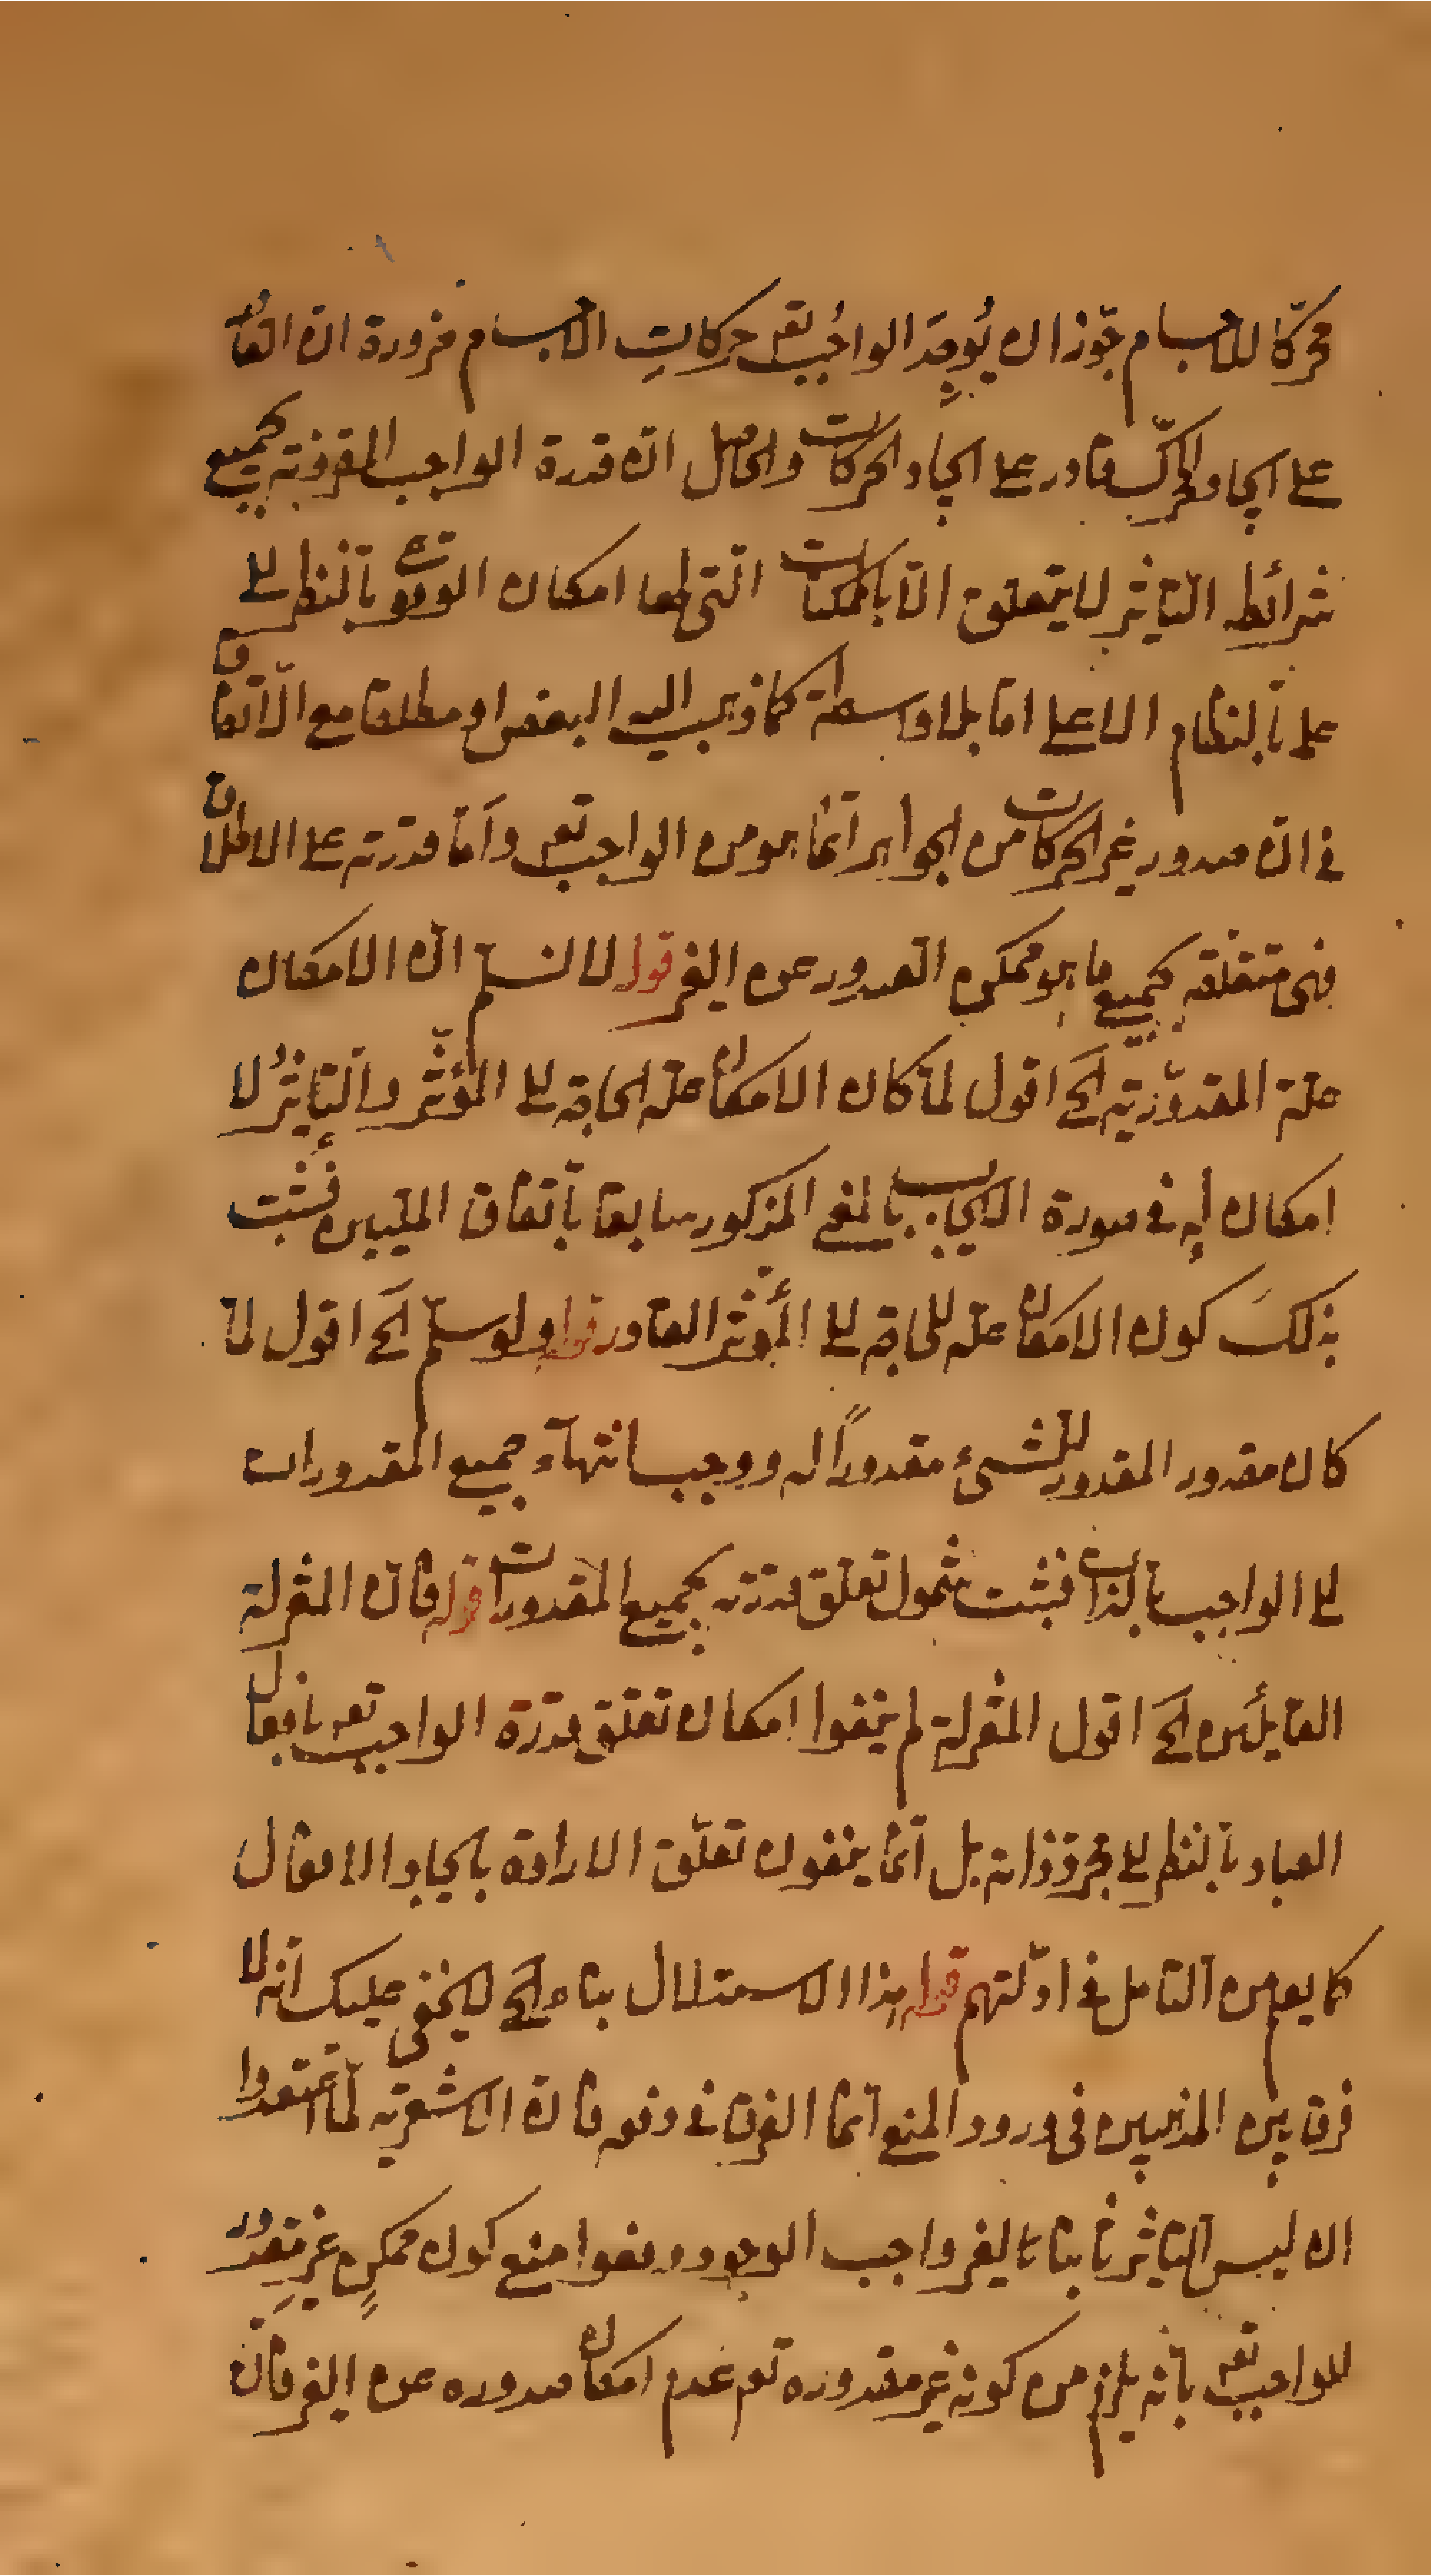 محركا للاجسام جوّز ان يُوجِدَ الواجبُ تعالى حركاتِ الاجسام ضرورة ان القادر
على ايجاد المحرّك قادر على ايجاد الحركات والحاصل ان قدرة الواجب المقرونة بجميع
شرائط التاثير لا يتعلق الّا بالممكنات التى لها امكان الوقوع بالنظر الى
علمه بالنظام الاعلى امّا بلا واسطة كما ذهب اليه البعض او مطلقا مع الاتفاق
فى ان صدور غير الحركات من الجواهر انّما هو من الواجب تعالى وامّا قدرته على الاطلاق
فهى متعلقة بجميع ما هو ممكن الصدور عن الغير قوله لا نسلّم انّ الامكان
علة المقدوريّة الخ اقول لمّا كان الامكان علة الحاجة الى المؤثّر والتاثيرُ لا
امكان له فى صورة الايجاب بالمعنى المذكور سابقا باتفاق المليين فثبت
بذلك كون الامكان علة للحاجة الى المؤثر القادر قوله ولو سلّم الخ اقول لمّا
كان مقدور المقدور للشئ مقدوراً له ووجب انتهاء جميع المقدورات
الى الواجب بالذات فثبت شمول تعلق قدرته بجميع المقدورات قوله فان المعتزلة
القائلين الخ اقول المعتزلة لم ينفوا امكان تعلق قدرة الواجب تعالى بافعال
العباد بالنظر الى مجرد ذاته بل انّما ينفون تعلّق الارادة بايجاد الافعال
كما يعلم من التامل فى ادلّتهم قوله هذا الاستدلال بناء الخ لا يخفى عليك انه لا
فرق بين المذهبين فى ورود المنع انّما الفرق فى دفعه فان الاشعرية لمّا اعتقدوا
ان ليس التاثير ثابتا لغير واجب الوجود دفعوا منع كون ممكنٍ غير مقدورٍ
للواجب تعالى بانه يلزم من كونه غير مقدوره تعالى عدم امكان صدوره عن الغير فان